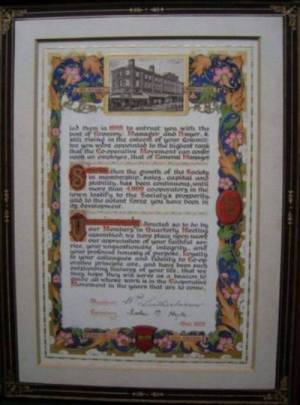 led them in 1898 to entrust you with the
post of Grocery Manager and Buyer, &
still rising in the esteem of your Commit-
tee you were appointed to the highest rank
that the Co-operative Movement can confer
upon an employee, that of General Manager
Since then the growth of the Society
in membership, sales, capital and
stability, has been continuous, until
now more than 4,000 cooperators in the
town testify to the Society's prosperity
and to the potent force you have been in
its development.
directed so to do by
our Members in Quarterly Meeting
assembled, we have place upon record
our appreciation of your faithful ser-
vice, your unquestionable integrity, and
your profound honesty of purpose. Loyalty
to your colleagues and fidelity to Co-op-
erative principle are, and have been such
outstanding features of your life, that we
may hope they will serve as a beacon to
guide all whose work is in the Cooperative
Movement in the years that are to come.
President
Secretary